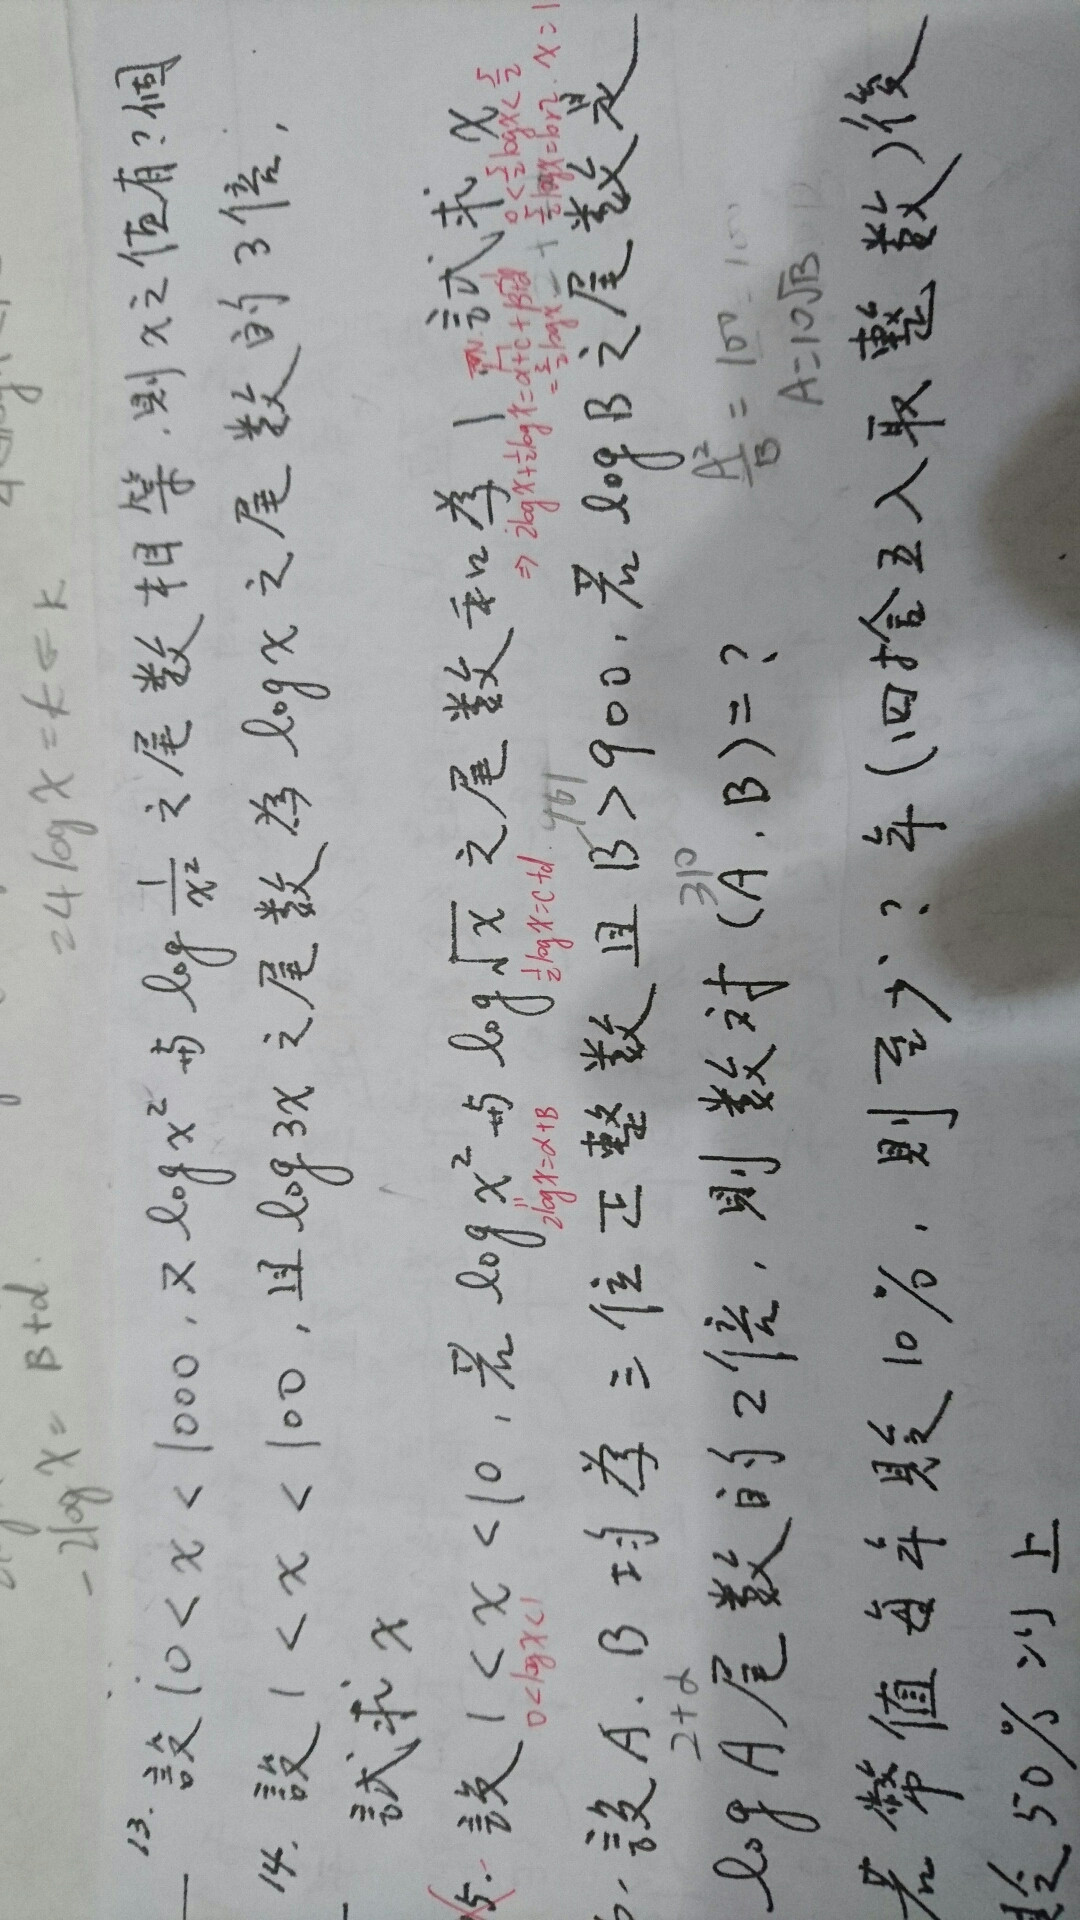 24logx=k∈K
-2logx= B+d.
13. 設10<x<1000,又logx²與log 1/x² 之尾數相等.則x之值有?個
14. 設1<x<100,且log3x之尾數為logx之尾數的3倍.
試求x
5. 設1<x<10,若logx²與log√x之尾數和為1,試求x
0<logx<1
2logx=α+β
½logx=c+d.
⇒2logx+½logx=α+c+β+d
=5/2logx
0<5/2logx<5/2
5/2logx=1or2.
設A.B均為三位正整數且B>900.若logB之尾數是
961
2+α
310
logA尾數的2倍,則數對(A.B)=?
A²/B=10⁰=100
A=10√B
若幣值每年貶10%,則至少?年(四捨五入取整數)後
貶50%以上